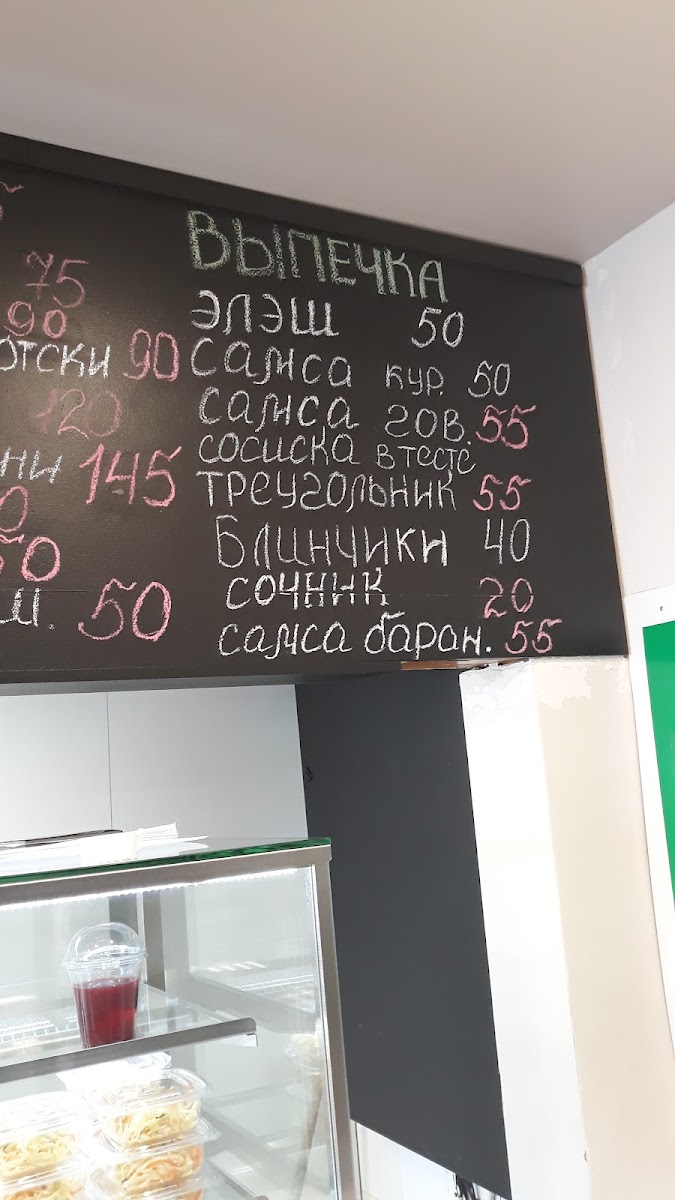 75
90
отски 90
120
ни 145
0
50
м. 50
ВЫПЕЧКА
ЭЛЭШ 50
самса кур. 50
самса гов. 55
сосиска в тесте
треугольник 55
Блинчики 40
сочник 20
самса баран. 55